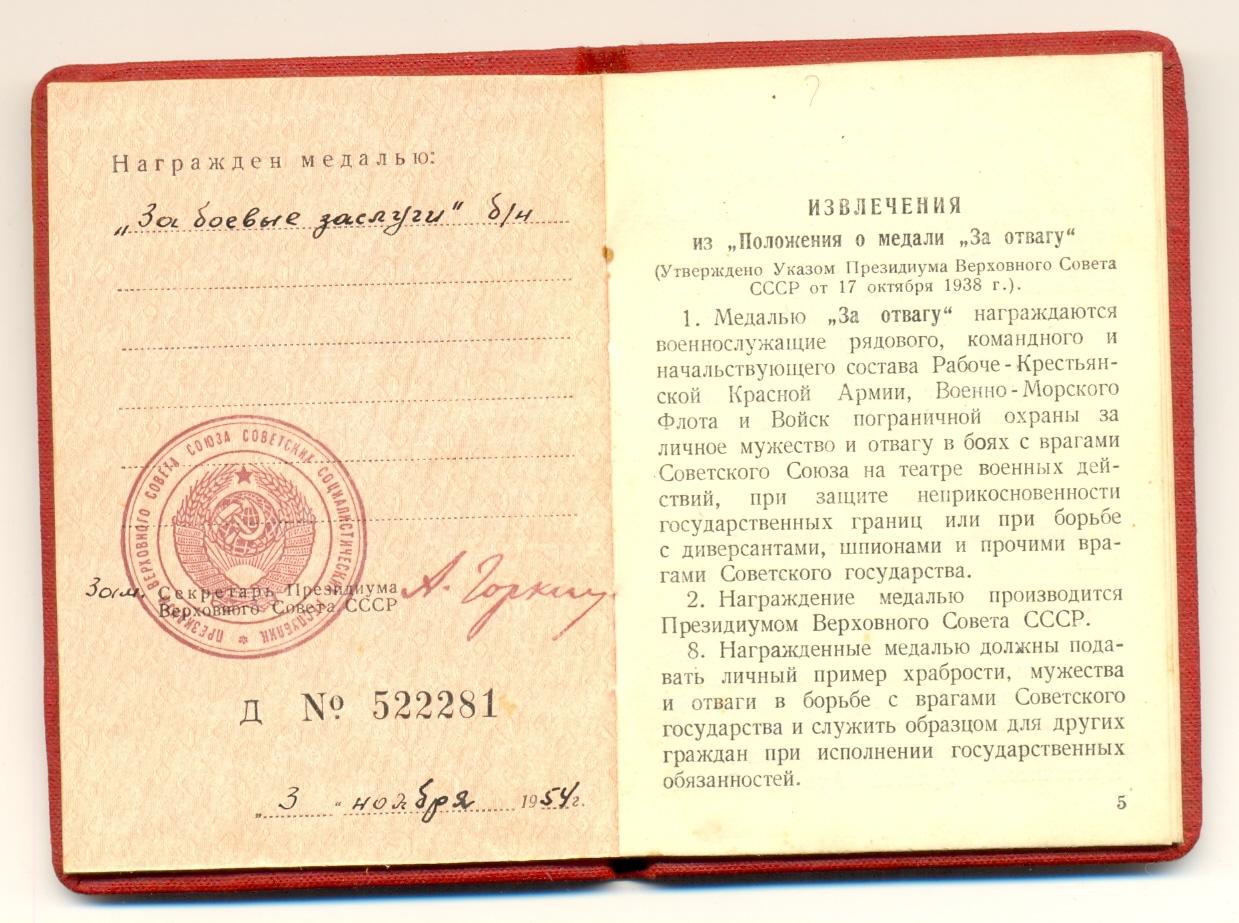 Награжден медалью:
„За боевые заслуги“ б/н
ПРЕЗИДИУМ ВЕРХОВНОГО СОВЕТА СОЮЗА СОВЕТСКИХ СОЦИАЛИСТИЧЕСКИХ РЕСПУБЛИК
Зам. Секретарь Президиума
Верховного Совета СССР
А. Горкин
Д № 522281
„3“ ноября 1954г.
ИЗВЛЕЧЕНИЯ
из „Положения о медали „За отвагу“
(Утверждено Указом Президиума Верховного Совета
СССР от 17 октября 1938 г.).
1. Медалью „За отвагу“ награждаются
военнослужащие рядового, командного и
начальствующего состава Рабоче-Крестьян-
ской Красной Армии, Военно-Морского
Флота и Войск пограничной охраны за
личное мужество и отвагу в боях с врагами
Советского Союза на театре военных дей-
ствий, при защите неприкосновенности
государственных границ или при борьбе
с диверсантами, шпионами и прочими вра-
гами Советского государства.
2. Награждение медалью производится
Президиумом Верховного Совета СССР.
8. Награжденные медалью должны пода-
вать личный пример храбрости, мужества
и отваги в борьбе с врагами Советского
государства и служить образцом для других
граждан при исполнении государственных
обязанностей.
5